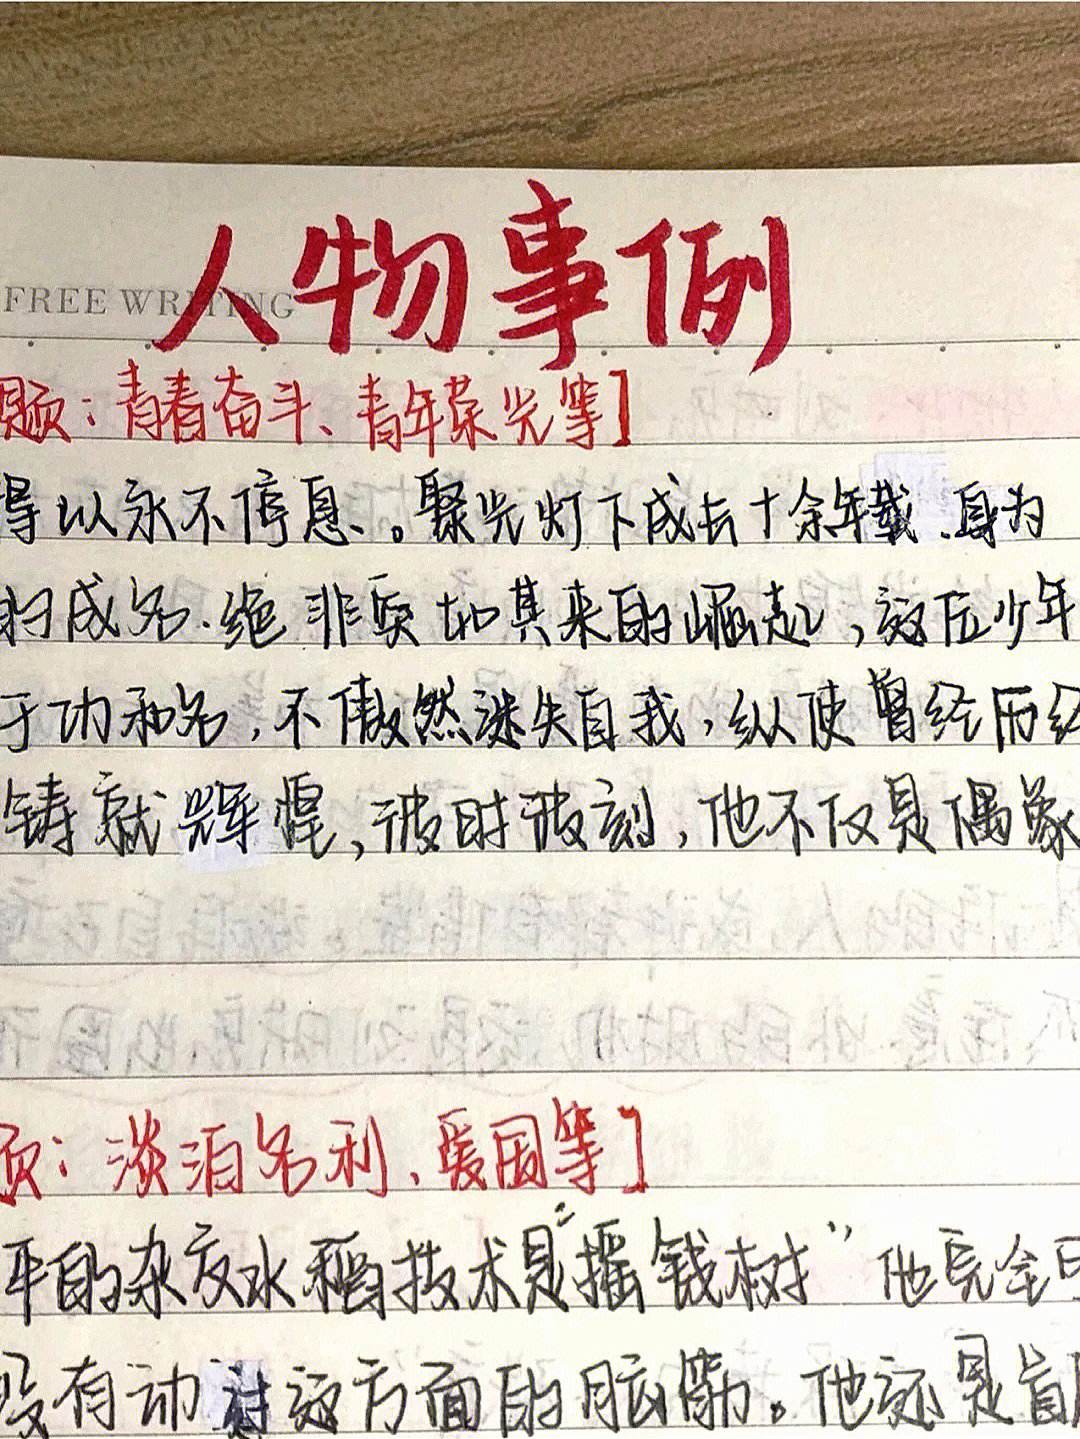 人物事例
FREE WRITING
题：青春奋斗、青年荣光等]
得以永不停息。聚光灯下成长十余年载，身为
的成名，绝非突如其来的崛起，这位少年
于功和名，不傲然迷失自我，纵使曾经历经
铸就辉煌，彼时彼刻，他不仅是偶象
页：淡泊名利、爱国等]
平的杂交水稻技术是“摇钱树”他完全可
没有动过这方面的脑筋。他还是首